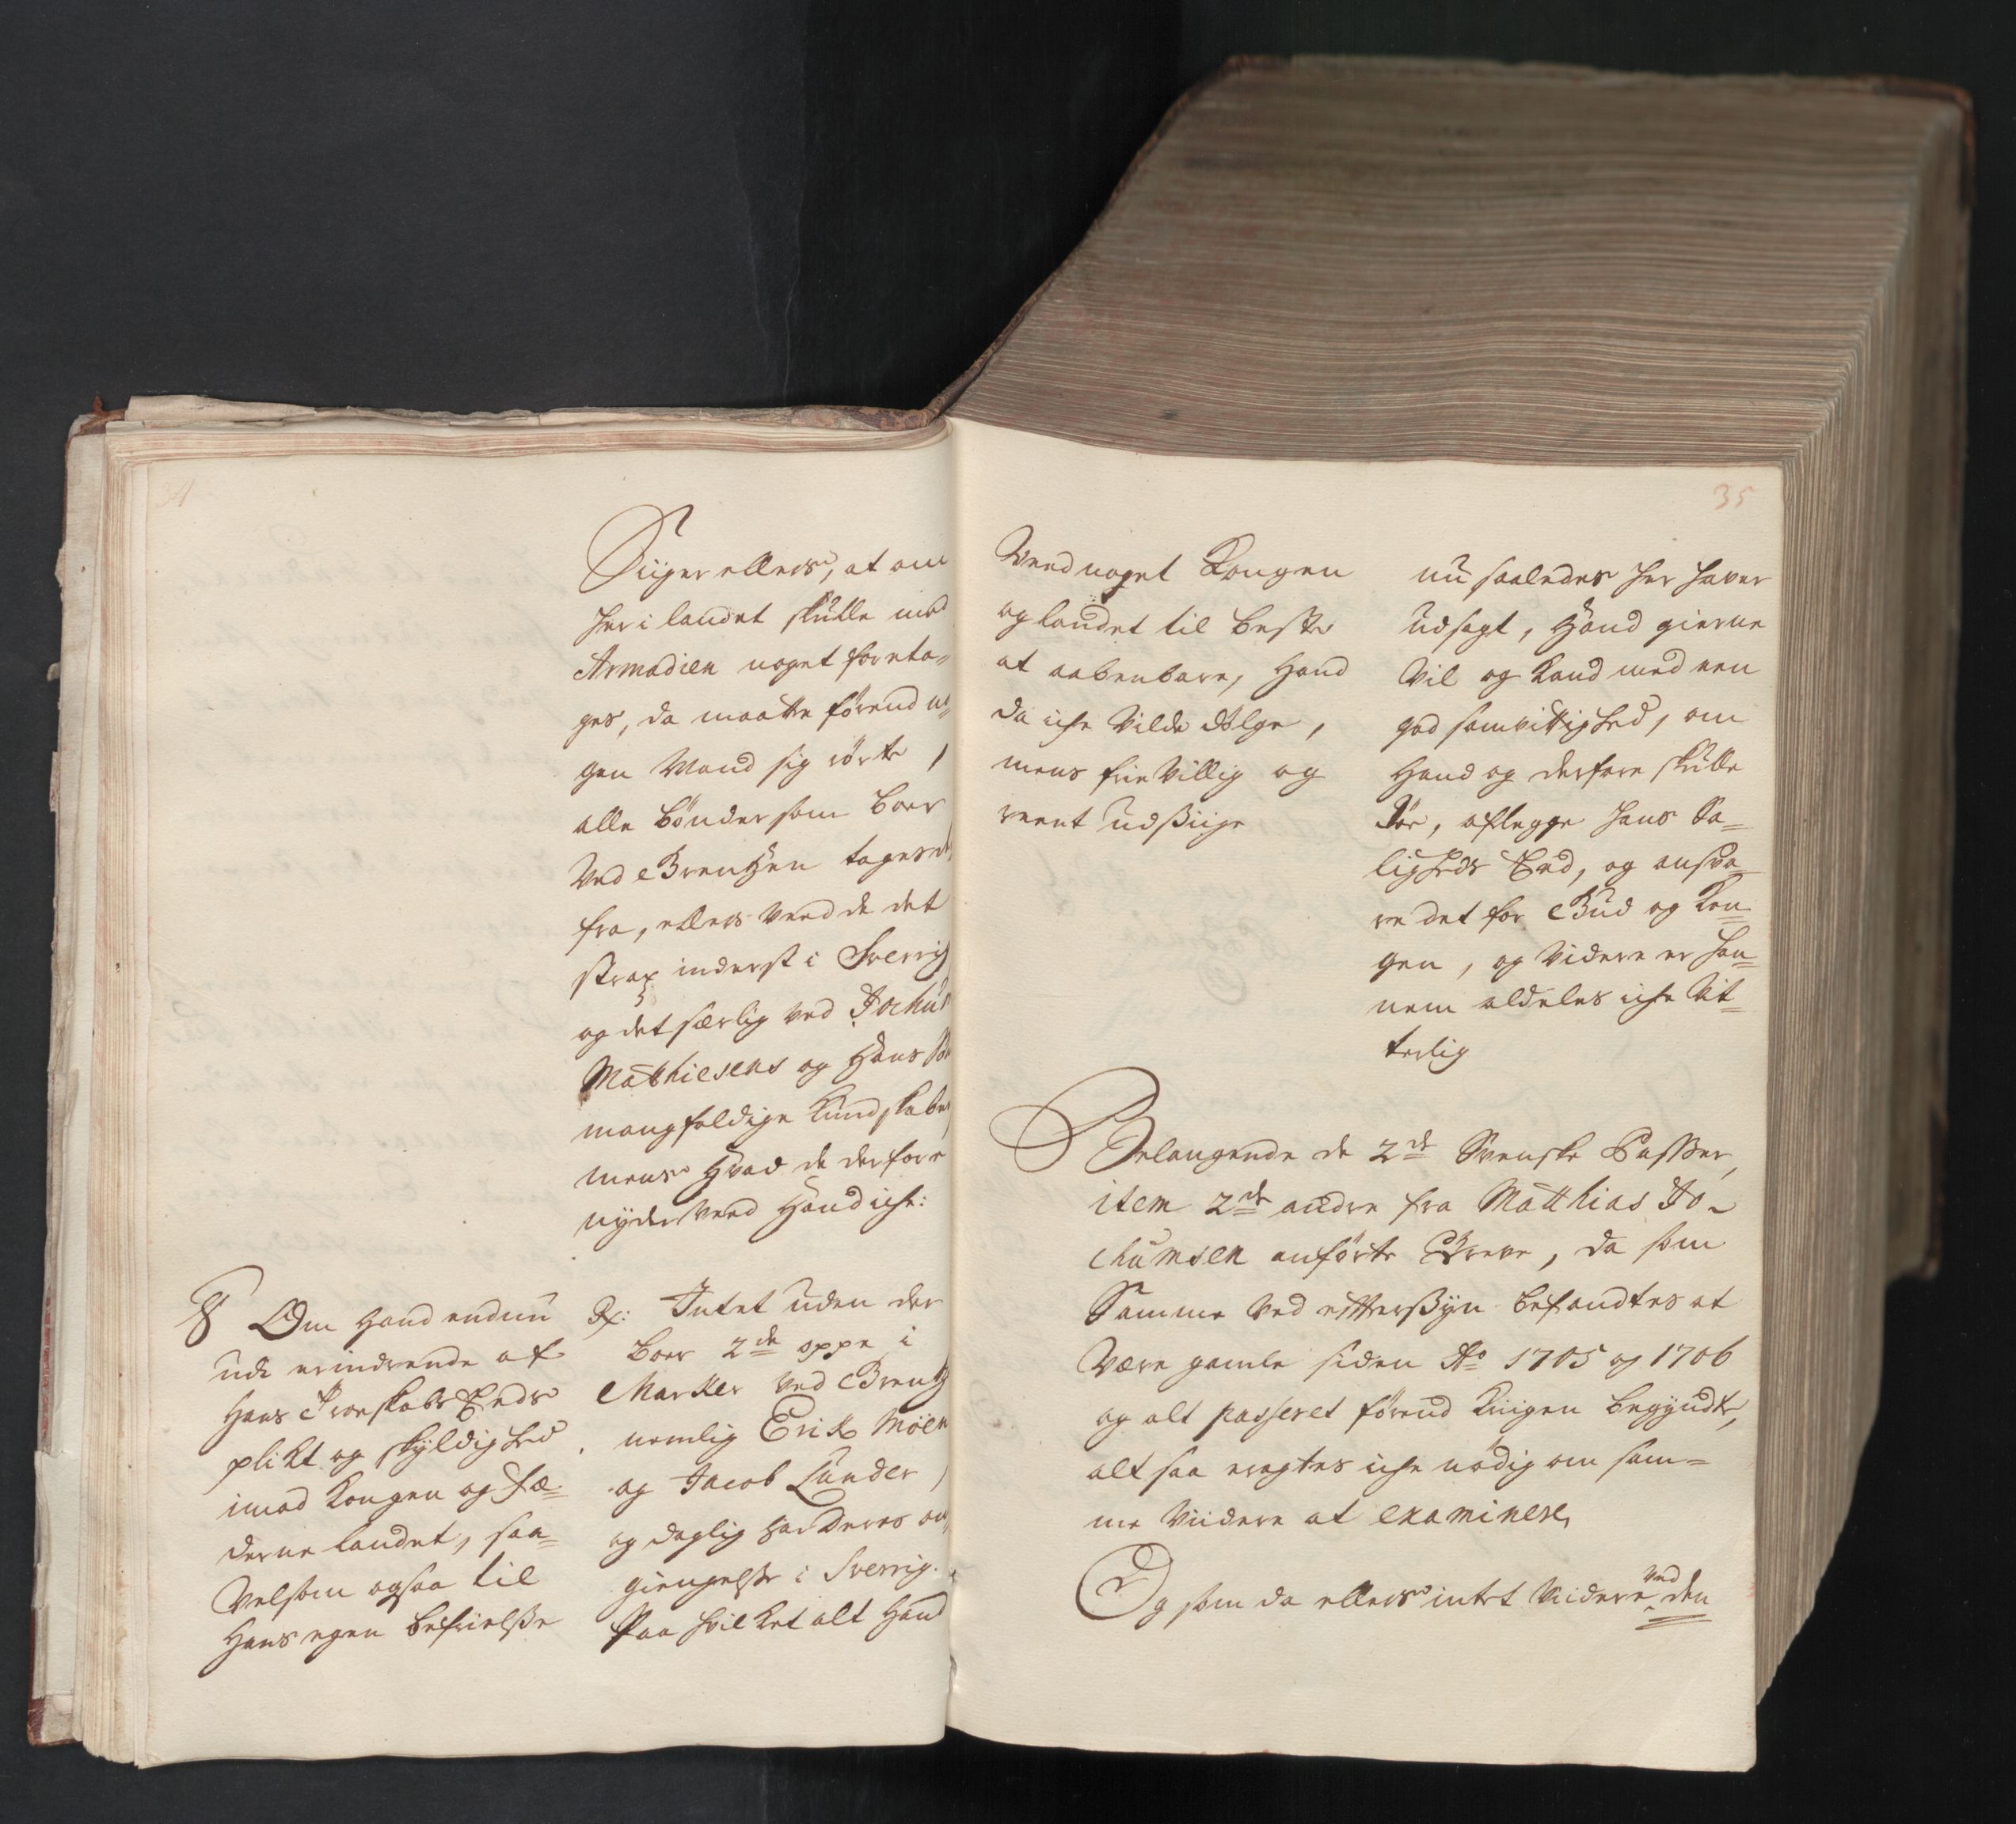 Siiger ellers, at om
her i landet skulle med
Armadien noget foreta-
ges, da maatte førend no-
gen Mand sig rørte,
alle bönder som boer
Ved Grentzen tages der
fra, ellers veed de det
strax inderst i Sverrig
og det særlig ved Jochum
Matthiesens og Hans
mangfoldige Kundskaber
mens Hvad de derfore
nyder veed Hand iche:
8 Om Hand endnu
ude erindrende af
Hans Troeskabs Eeds
plikt og skyldighed
imod Kongen og Fæ-
derne landet, saa-
Velsom ogsaa til
Hans egen befrielsse
Rx: Intet uden der
boer 2de oppe i
Marker ved Grentz
nemlig Erik Moen
og Jacob Lunder,
og daglig har deres om-
giengelse i Sverrig.
Paa hvilket alt Hand
35
Veed noget Kongen
og landet til beste
at aabenbare, Hand
da iche Vilde dølge,
mens frie Villig og
reent udssiige
nu saaledes her haver
udsagt, Hand gierne
Vil og Kand med een
god samvittighed, om
Hand og derfore skulle
Döe, aflegge hans Sa-
ligheds Eed, og ansva-
re det for Gud og Kon-
gen, og Videre er han-
nem aldeles iche Vit-
terlig
Belangende de 2de Svenske Passer,
item 2de andre fra Matthias Jo-
chumsen anførte Breve, da som
Samme Ved efterssyn befandtes at
Være gamle siden Ao 1705 og 1706
og alt passeret førend Kriigen begyndte,
alt saa eragtes iche nödig om sam-
me Viidere at examinere,
Og som da ellers intet Viidere ved den